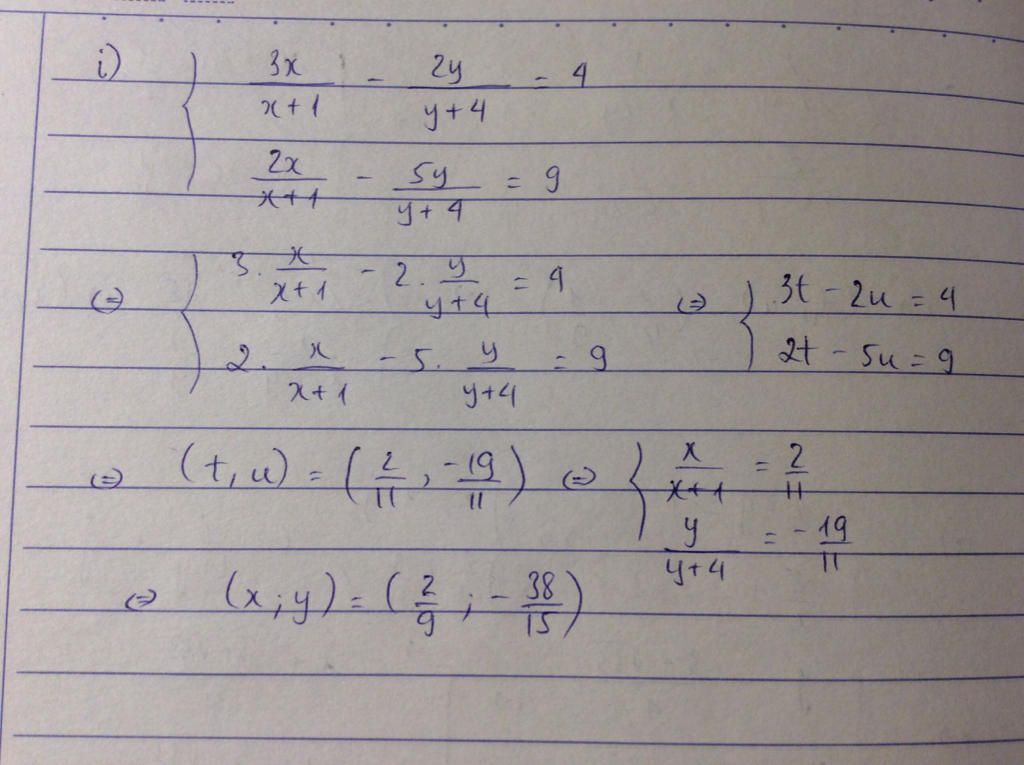 i) { 3x/(x+1) - 2y/(y+4) = 4
2x/(x+1) - 5y/(y+4) = 9
⇔ { 3. x/(x+1) - 2. y/(y+4) = 4 ⇔ { 3t - 2u = 4
2. x/(x+1) - 5. y/(y+4) = 9 2t - 5u = 9
⇔ (t, u) = (2/11, -19/11) ⇔ { x/(x+1) = 2/11
y/(y+4) = -19/11
⇔ (x; y) = (2/9; -38/15)